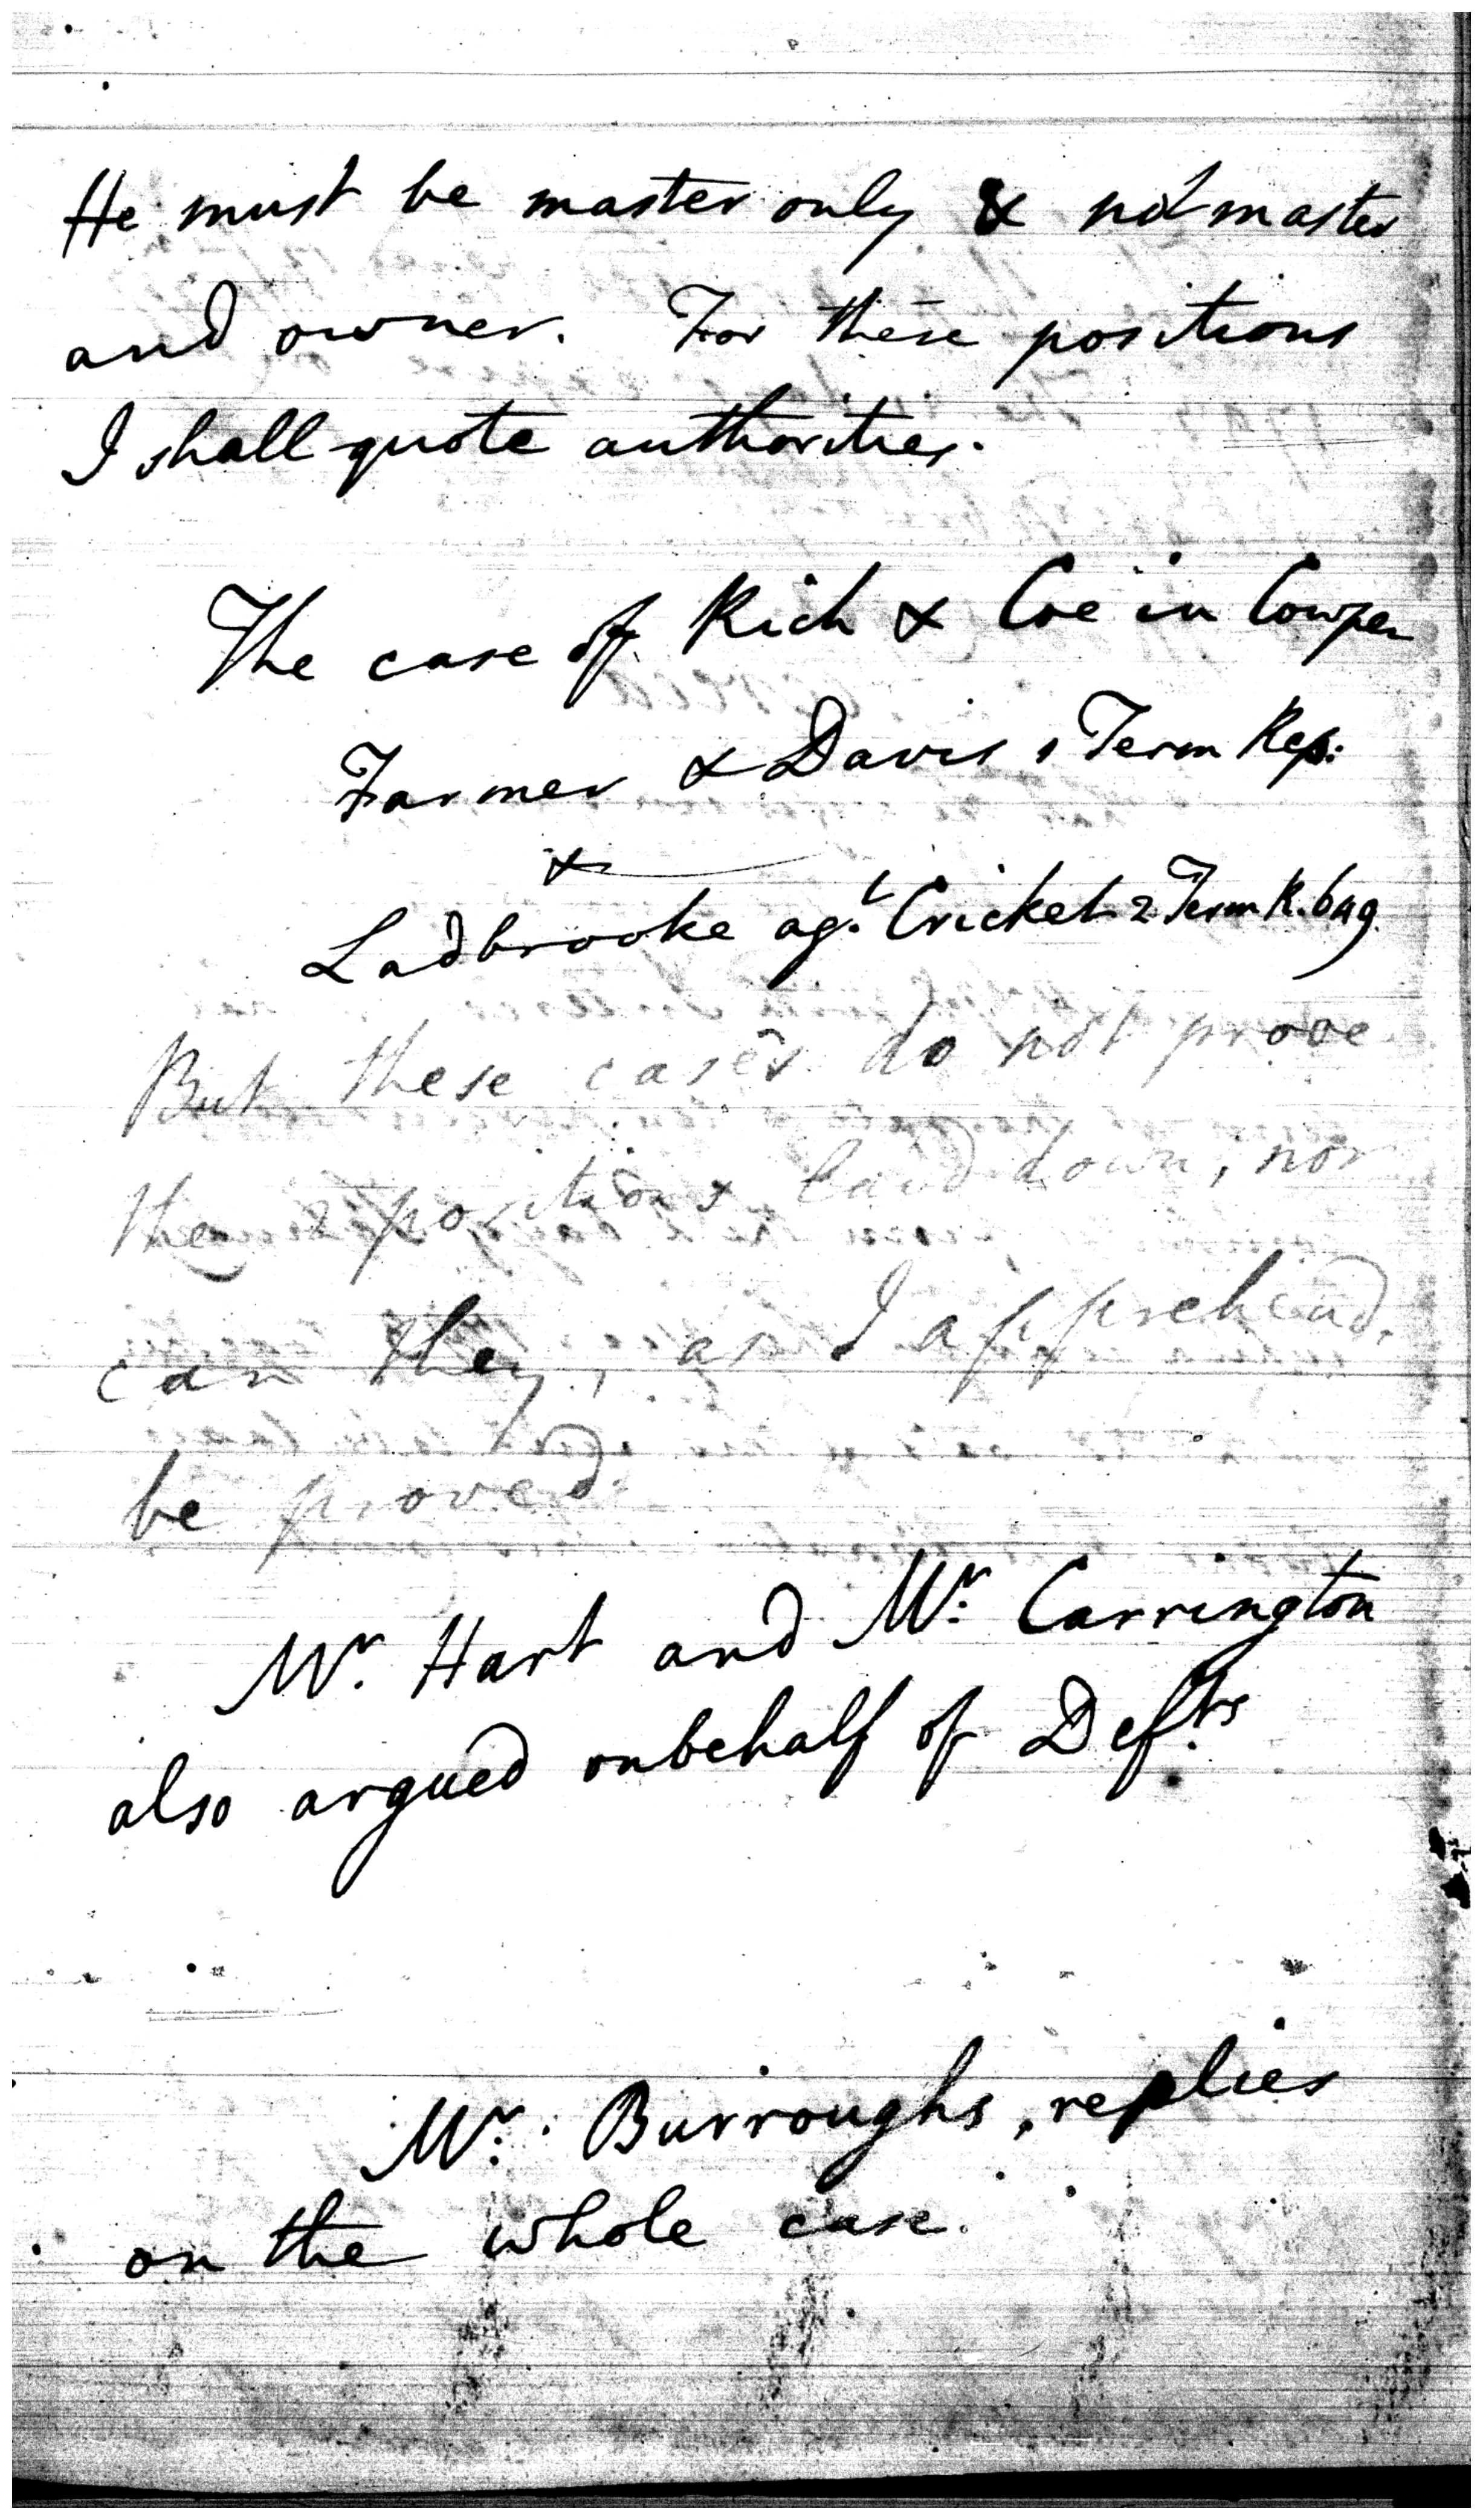 He must be master only & not master
and owner. For these positions
I shall quote authorities.
The case of Rich & Coe in Cowper
Farmer & Davis 1 Term Rep.
&
Ladbrooke agt. Cricket 2 Term R. 649.
But these cases do not prove
the 2 positions laid down, nor
can they, as I apprehend,
be proved.
Mr. Hart and Mr. Carrington
also argued on behalf of Defts.
Mr. Burroughs, replies
on the whole case.